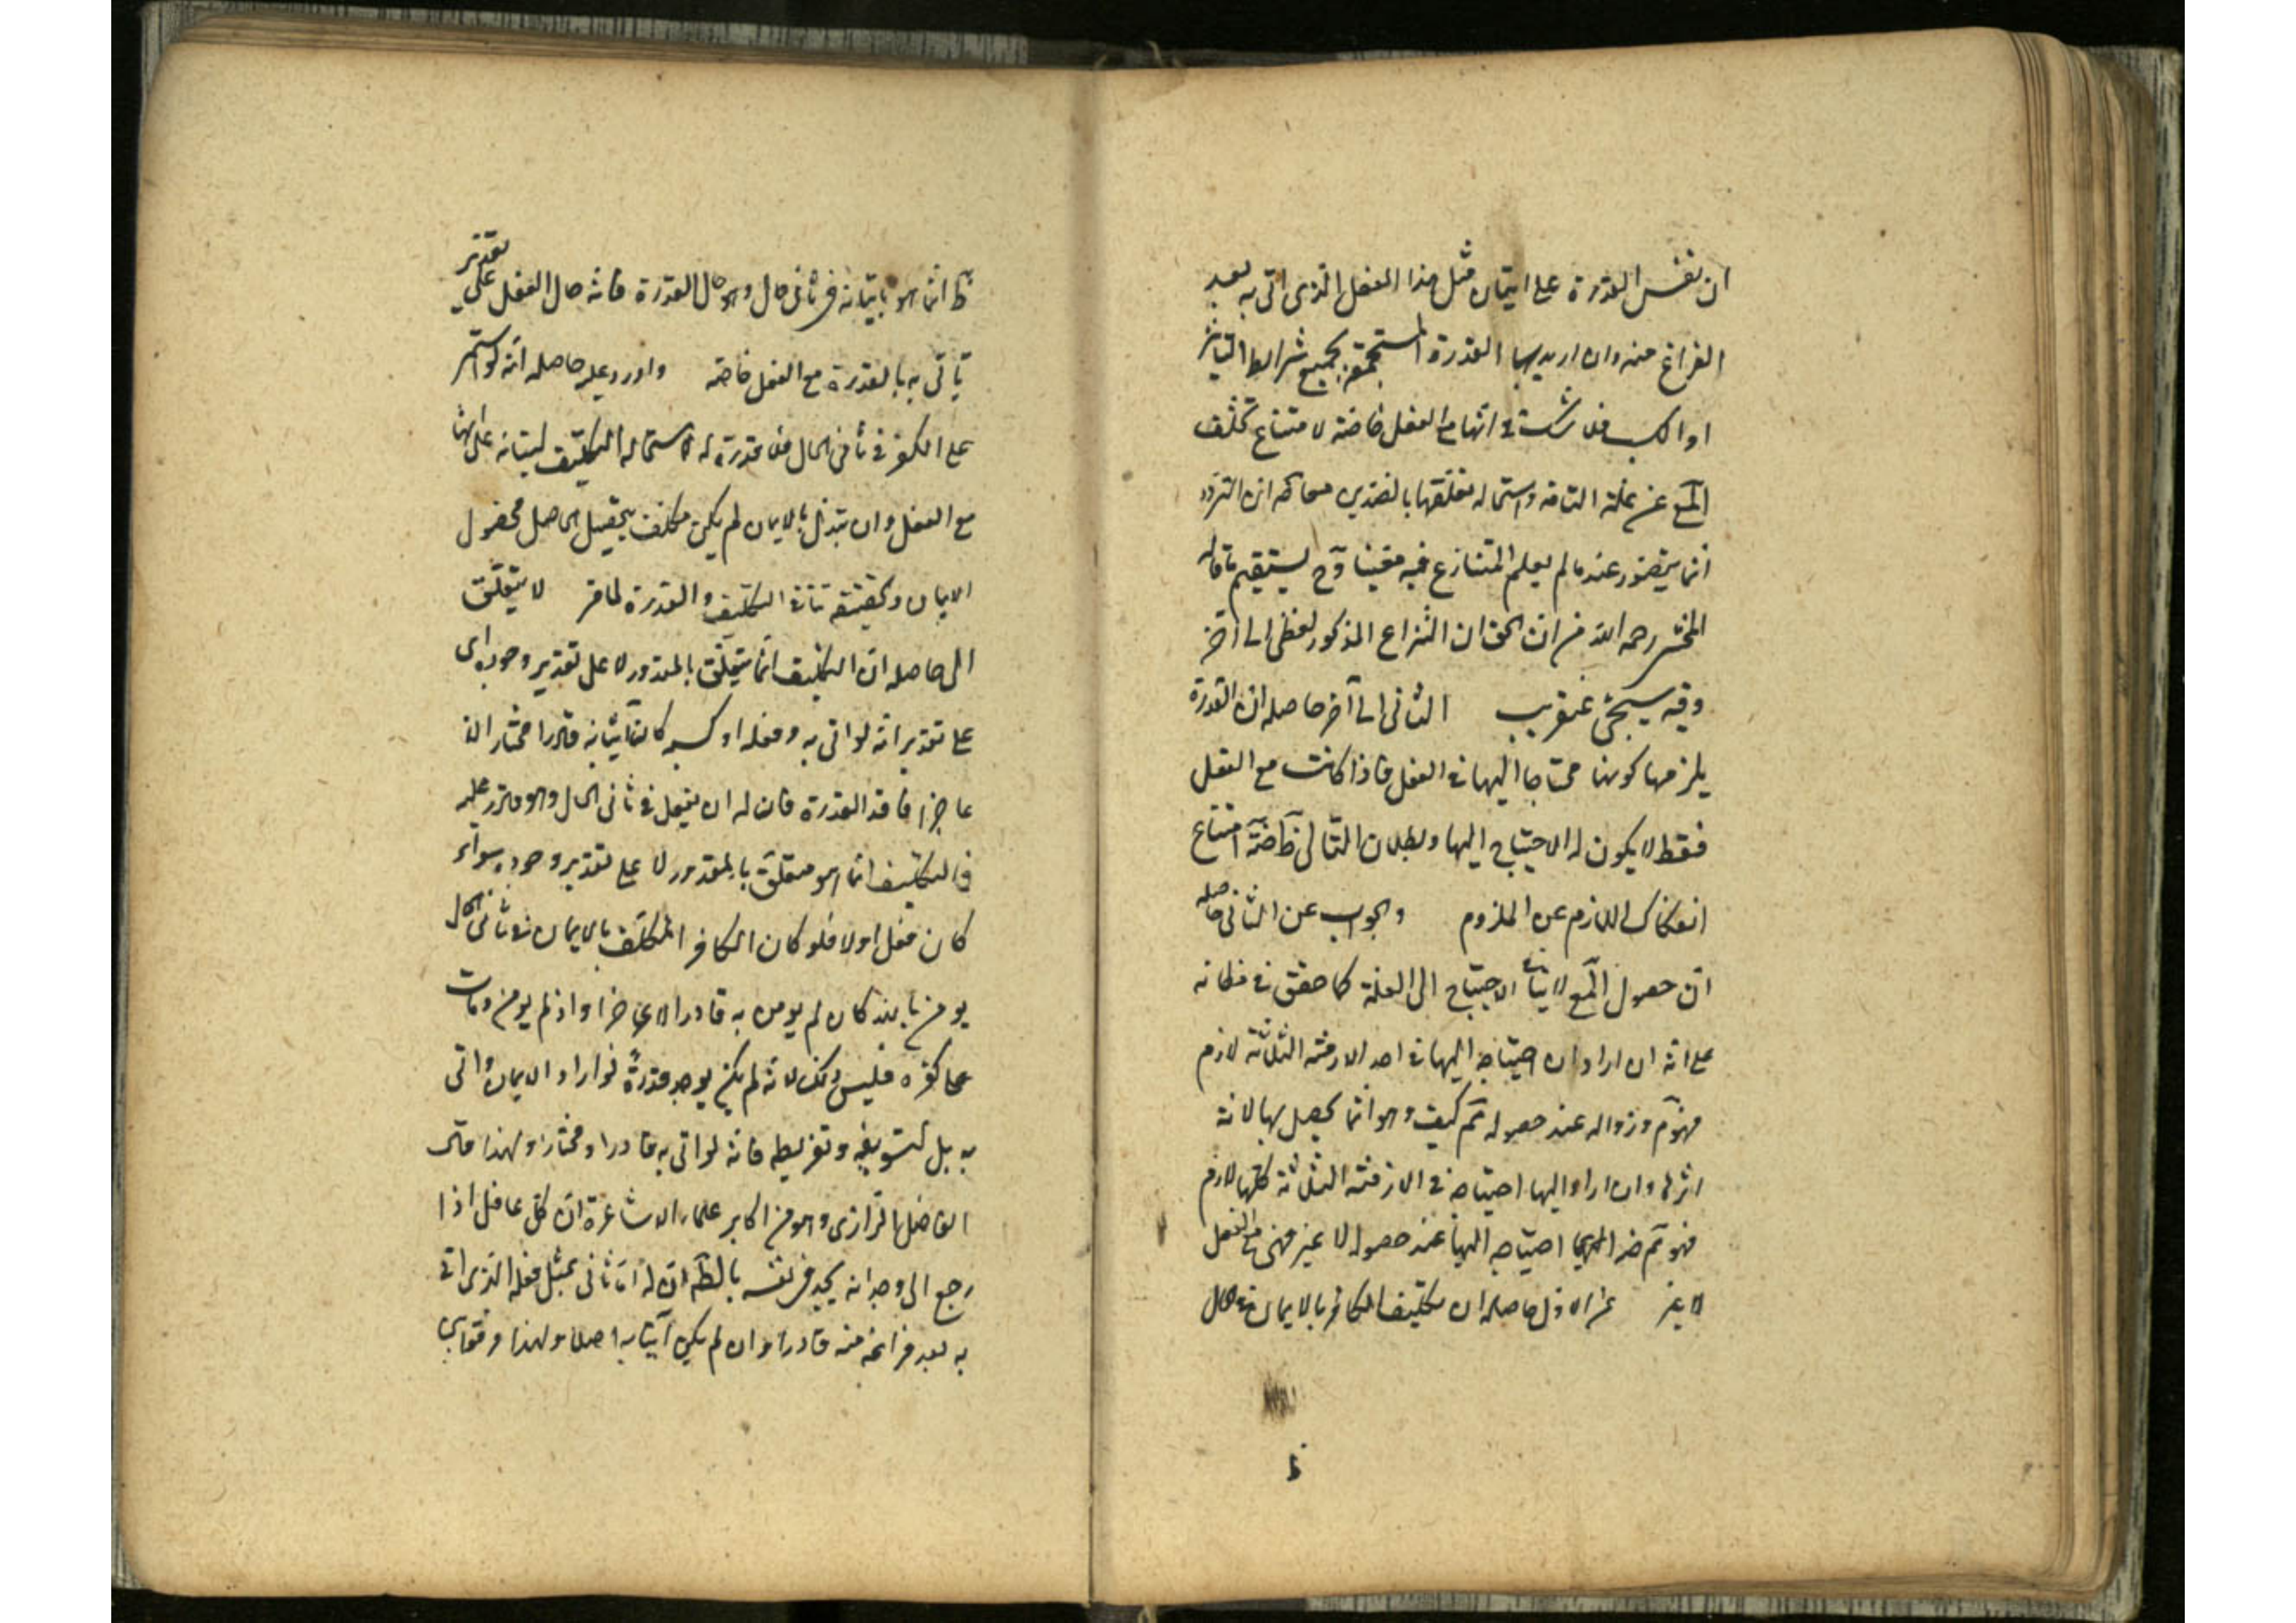 ان نفس القدرة على اتيان مثل هذا الفعل الذى اتى به بعد
الفراغ منه وان اريد بها القدرة المستجمعة بجميع شرايط التاثير
او الكسب فلا شك فى انها مع الفعل خاصة لامتناع تخلف
المع عن علته التامة واستحالة تعلقها بالضدين معا كه ان التردد
انما يتصور عند ما لم يعلم المتنازع فيه معينا وح يستقيم ما قاله
المحشى رحمه الله من ان الحق ان النزاع المذكور لفظى الى آخر
وفيه سيجئ عنقريب الثانى الى آخر حاصله ان القدرة
يلزمها كونها محتاجا اليها فى الفعل فاذا كانت مع الفعل
فقط لا يكون له الاحتياج اليها وبطلان التالى ظ ضة امتناع
انفكاك اللازم عن الملزوم والجواب عن الثانى حاصله
ان حصول المع لا ينافى الاحتياج الى العلة كما حقق فى مظانه
على انه ان اراد ان احتياجه اليها فى احد الازمنة الثلثة لازم
فهو م وزواله عند حصوله مم كيف وهو انما يحصل بها لانه
اثر لها وان اراد اليها احتياجه فى الازمنة الثلثة كلها لازم
فهو مم ضة احتياجه اليها عند حصوله لا غير فهى مع الفعل
لا غير عن الاول حاصله ان تكليف الكافر بالايمان فى الحال
ظ انما هو باتيانه فى ثانى حال وهو حال القدرة فانه حال الفعل على تقدير
ياتى به بالقدرة مع الفعل خاصة واورد عليه حاصله انه لو استمر
على الكفر فى ثانى الحال فلا قدرة له لاستحالة التكليف لبتانه على انها
مع الفعل وان تبدل بالايمان لم يكن مكلف بتحصيل الحاصل لحصول
الايمان وتحقيقه تنافى التكليف والقدرة لما مر لا يتعلق
الى حاصله ان التكليف انما يتعلق بالمقدور لا على تقدير وجوده اى
على تقدير انه لو اتى به وفعله او كسبه كان اتيانه قادرا مختارا لا
عاجزا فاقد القدرة فان له ان يفعل فى ثانى الحال وهو قادر عليه
فالتكليف انما هو متعلق بالمقدور لا على تقدير وجوده سواء
كان فعل اولا فلو كان الكافر المكلف بالايمان فى ثانى الحال
يومن بالله كان لم يومن به قادرا لا عاجزا واذ لم يومن ومات
على كفره فليس ذلك لانه لم يكن يوجد قدرة لو اراد الايمان واتى
به بل لتسويفه وتفريطه فانه لو اتى به قادرا ومختارا ولهذا قال
الفاضل الرازى وهو من اكابر علماء الاشاعرة ان كل عاقل اذا
رجع الى وجدانه يجد فى نفسه بالظ ان له ان ثانى بمثل فعله الذى اتى
به بعد فراغه منه قادرا وان لم يكن آتيا به اصلا ولهذا